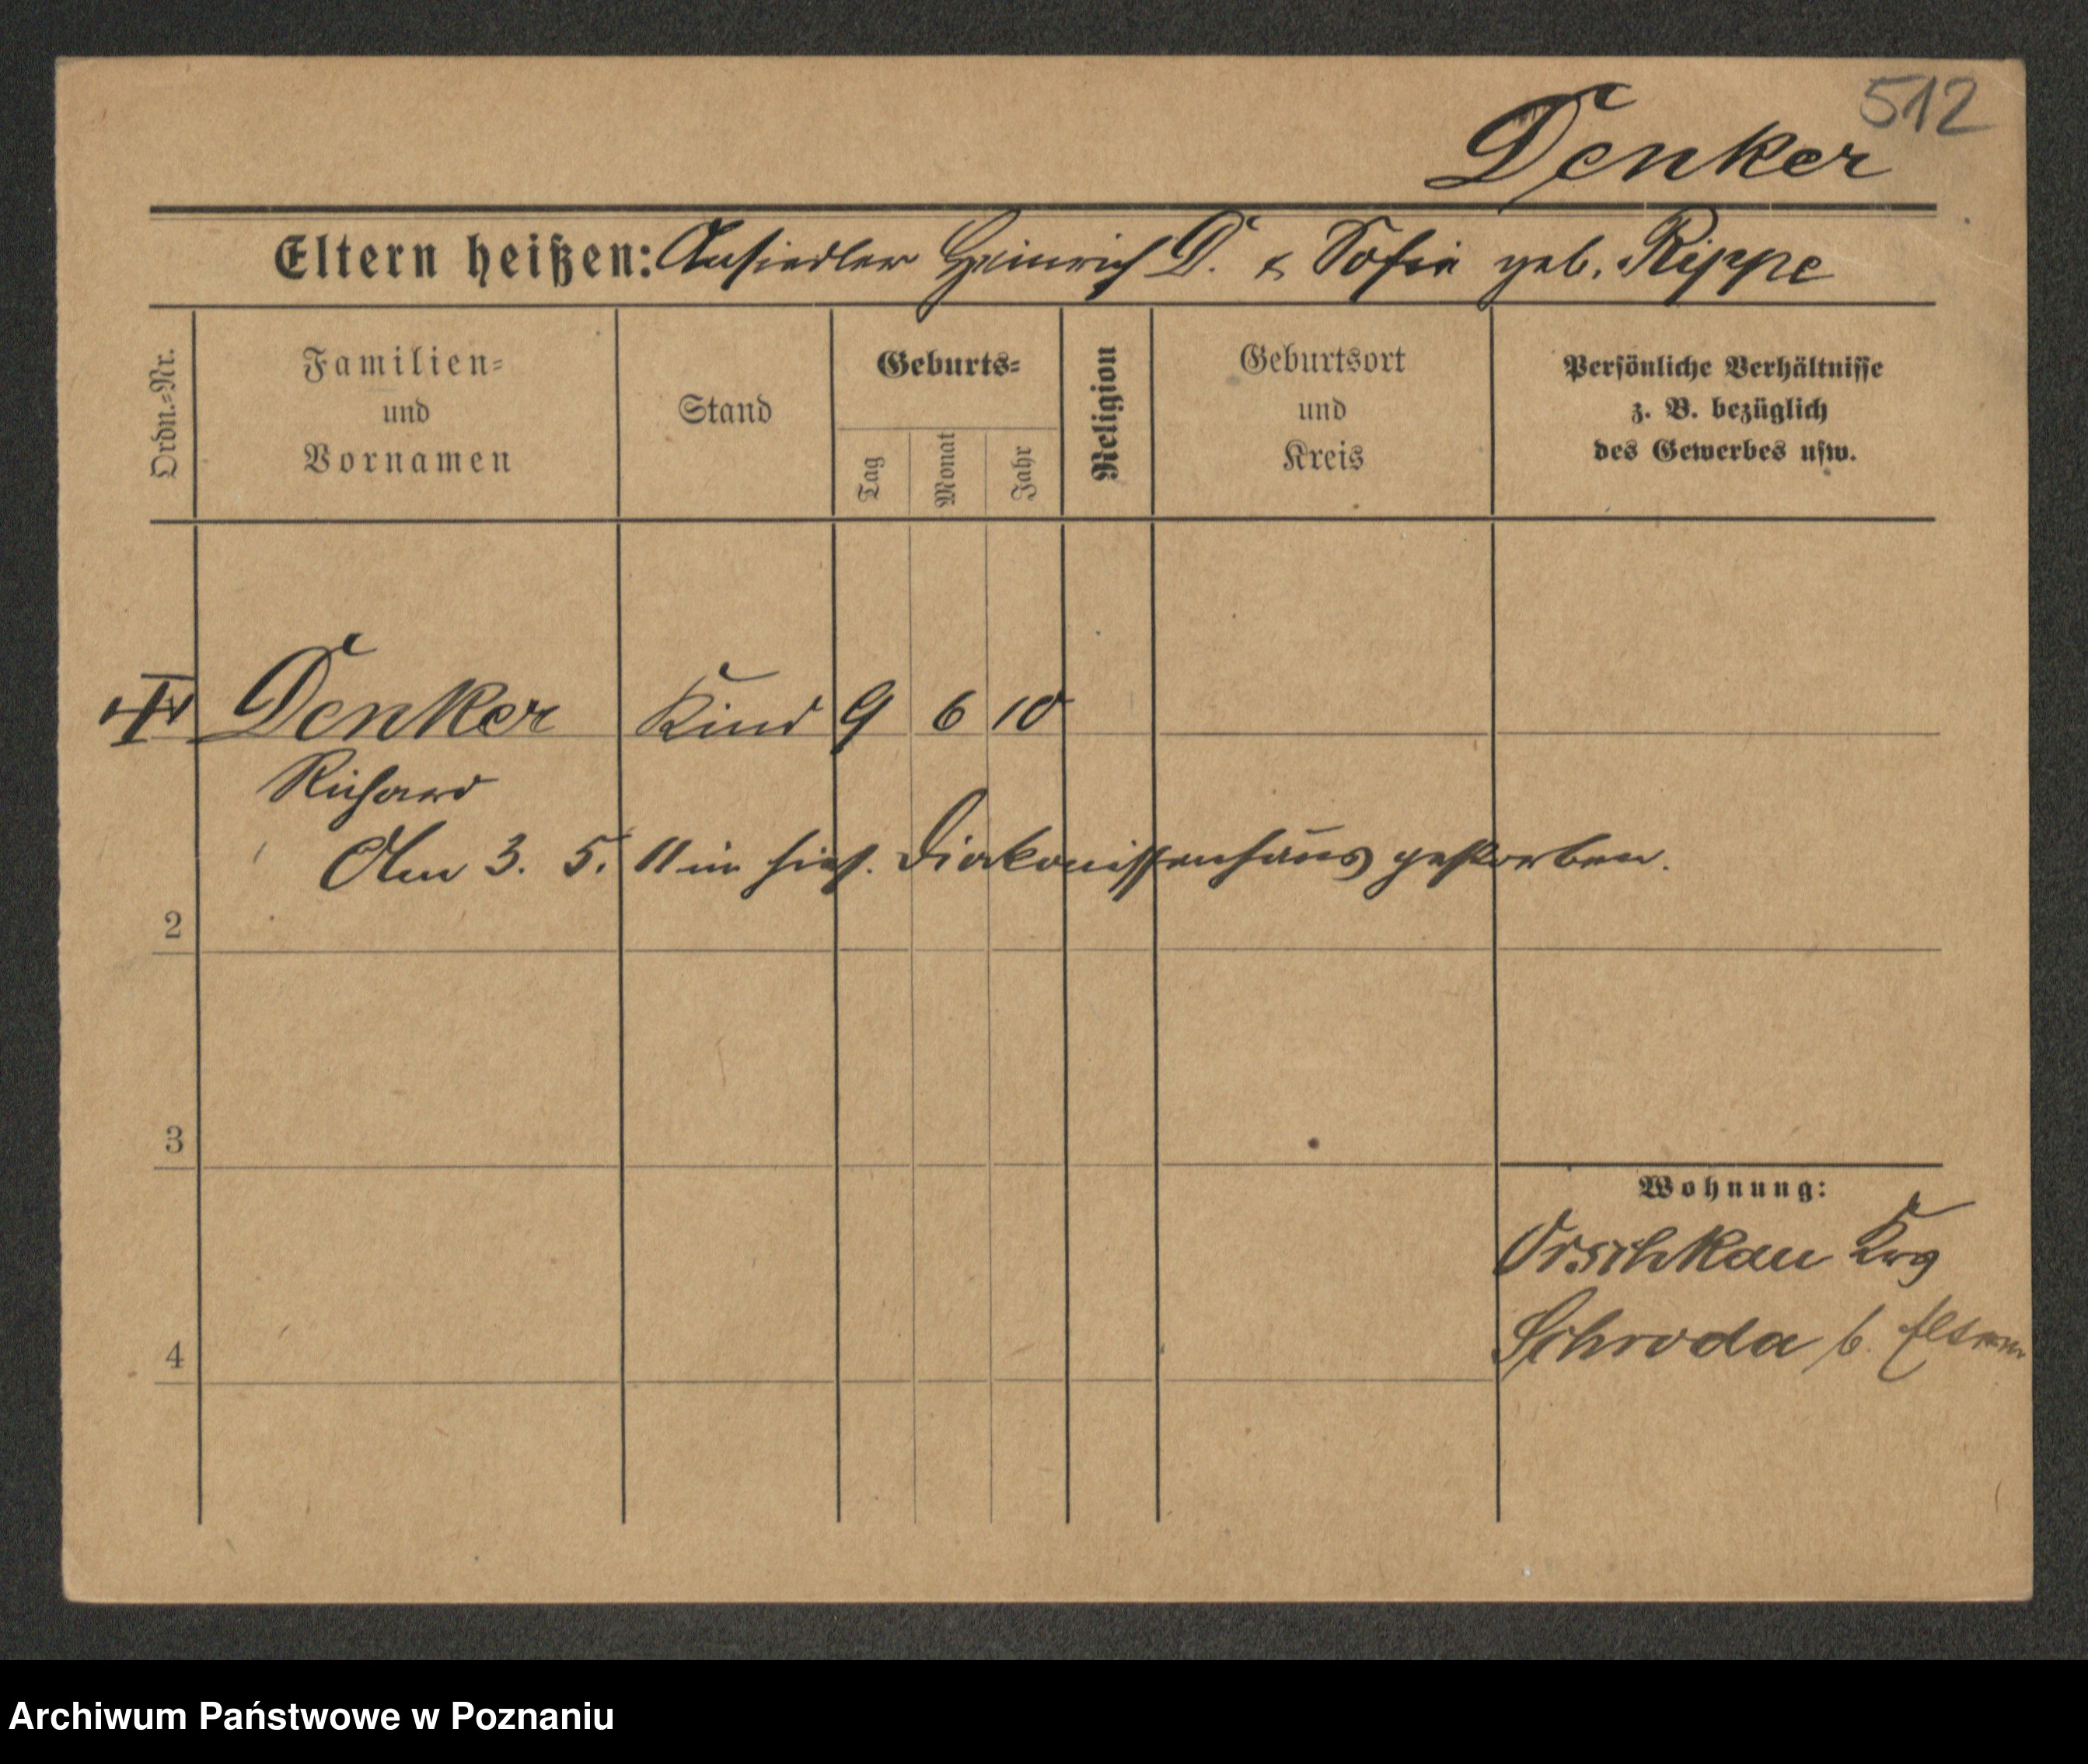 512
Denker
Eltern heißen: Ansiedler Heinrich D. & Sofie geb. Rippe
Ordn.-Nr.
Familien-
und
Vornamen
Stand
Geburts-
Tag
Monat
Jahr
Religion
Geburtsort
und
Kreis
Persönliche Verhältnisse
z. B. bezüglich
des Gewerbes usw.
Denker Kind 9 6 10
Richard
Am 3. 5. 11 im hies. Diakonissenhaus gestorben.
2
3
Wohnung:
Orschkau Krs
Schroda b. Eltern
4
Archiwum Państwowe w Poznaniu